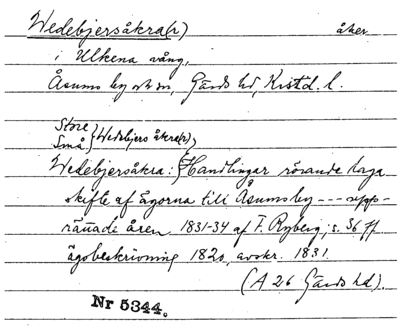 Wedebjersåkra(r) åker
i Ulkena vång,
Åsums by o sn, Gärds hd, Kristd. l.
Store
Små } Wedebjers åkra(r)
Wedebjersåkra: (Handlingar rörande laga
skifte af ägorna till Åsums by --- upp-
rättade åren 1831-34 af F. Ryberg, s. 36 ff
ägobeskrivning 1820, avskr. 1831.
(A 26 Gärds hd).
Nr 5344.